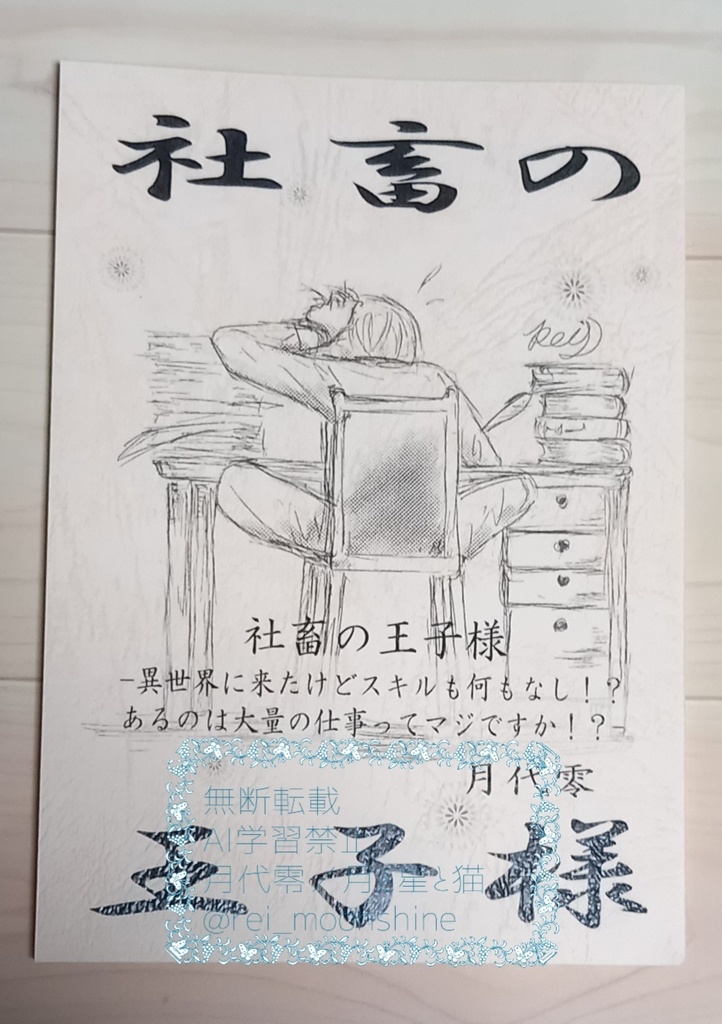 社畜の
Rei
社畜の王子様
−異世界に来たけどスキルも何もなし！？
あるのは大量の仕事ってマジですか！？−
月代零
王子様
無断転載
AI学習禁止
月代零 月と星と猫
@rei_moonshine